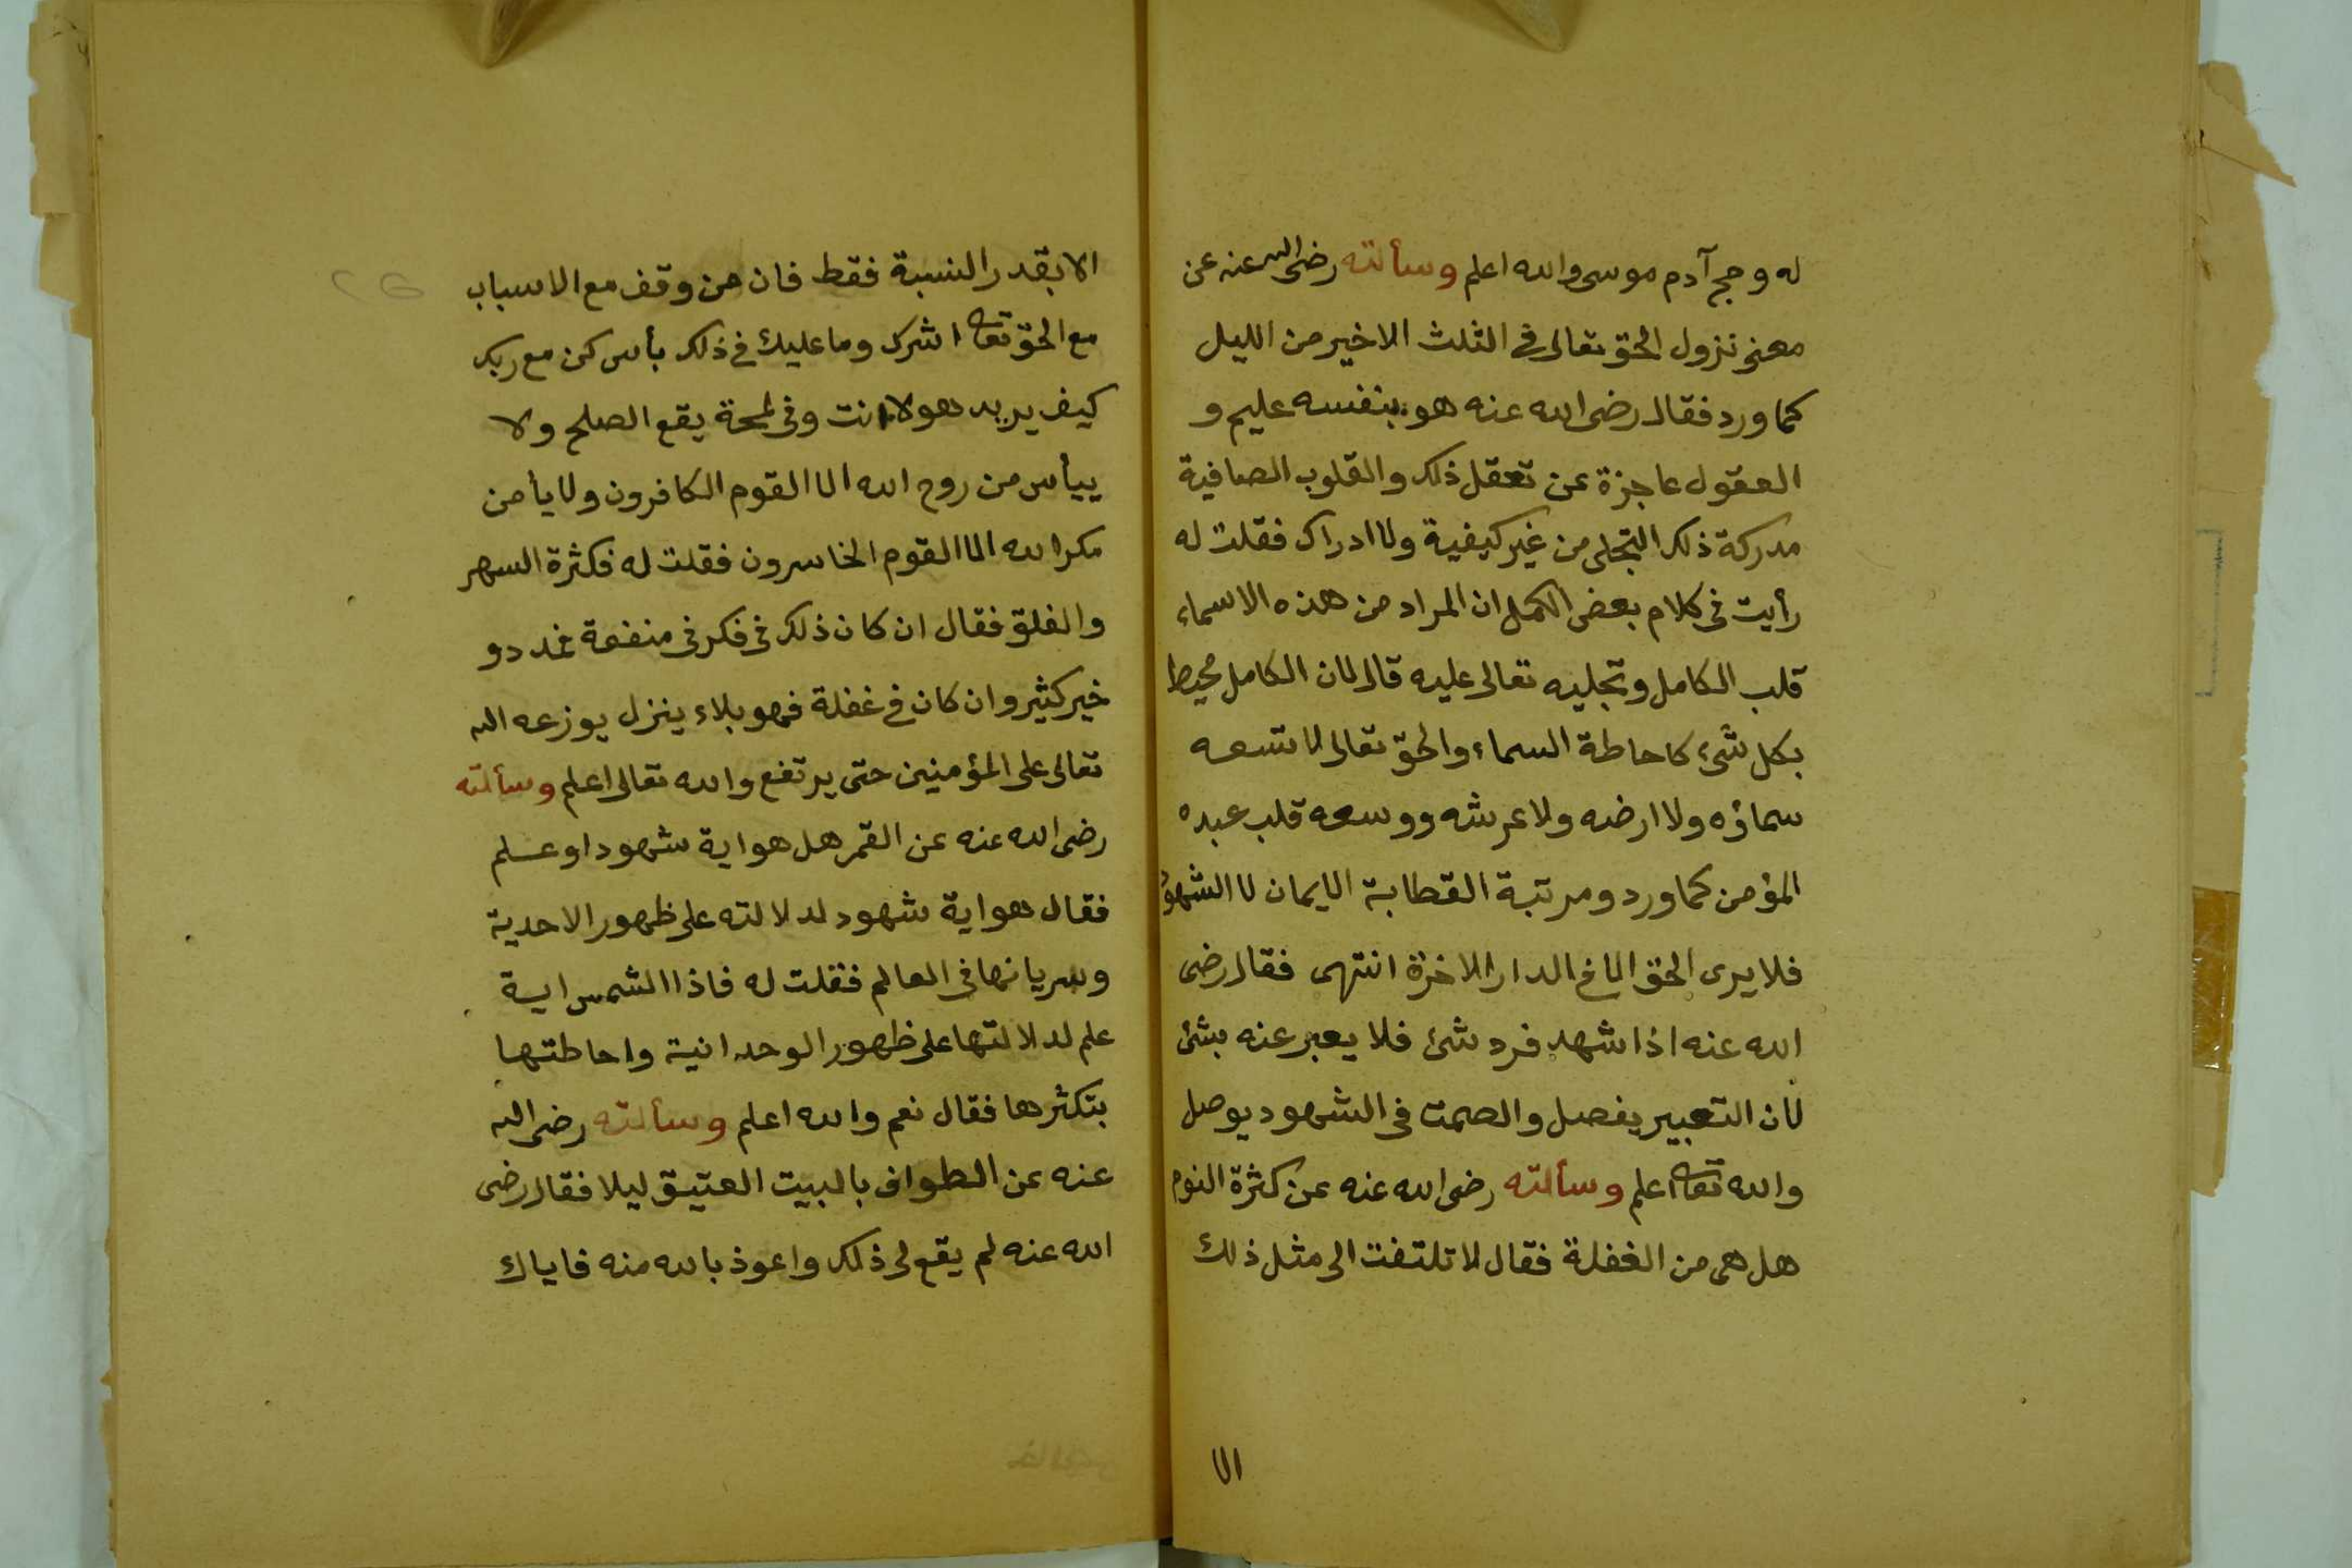 له وحج آدم موسى والله اعلم وسألته رضى الله عنه عن
معنى نزول الحق تعالى في الثلث الاخير من الليل
كما ورد فقال رضى الله عنه هو بنفسه عليم و
العقول عاجزة عن تعقل ذلك والقلوب الصافية
مدركة ذلك التجلى من غير كيفية ولا ادراك فقلت له
رأيت فى كلام بعض الكمل ان المراد من هذه الاسماء
قلب الكامل وتجليه تعالى عليه قال لان الكامل محيط
بكل شئ كاحاطة السماء والحق تعالى لا تسعه
سماؤه ولا ارضه ولا عرشه ووسعه قلب عبده
المؤمن كما ورد ومرتبة القطابة الايمان لا الشهو
فلا يرى الحق الا فى الدار الاخرة انتهى فقال رضى
الله عنه اذا شهد فرد شئ فلا يعبر عنه بشئ
لان التعبير يفصل والصمت فى الشهود يوصل
والله تعالى اعلم وسألته رضى الله عنه عن كثرة النوم
هل هى من الغفلة فقال لا تلتفت الى مثل ذلك
الا
الا بقدر النسبة فقط فان من وقف مع الاسباب
مع الحق تعالى اشرك وما عليك فى ذلك بأس كن مع ربك
كيف يريد هو لا انت وفى لمحة يقع الصلح ولا
ييأس من روح الله الا القوم الكافرون ولا يأمن
مكر الله الا القوم الخاسرون فقلت له فكثرة السهر
والقلق فقال ان كان ذلك فى فكر فى منفعة فمدد و
خير كثير وان كان فى غفلة فهو بلاء ينزل يوزعه الله
تعالى على المؤمنين حتى يرتفع والله تعالى اعلم وسألته
رضى الله عنه عن القمر هل هو اية شهود او علم
فقال هو اية شهود لدلالته على ظهور الاحدية
وسريانها فى العالم فقلت له فاذا الشمس اية
علم لدلالتها على ظهور الوحدانية واحاطتها
بتكثرها فقال نعم والله اعلم وسألته رضى الله
عنه عن الطواف بالبيت العتيق ليلا فقال رضى
الله عنه لم يقع لى ذلك واعوذ بالله منه فاياك